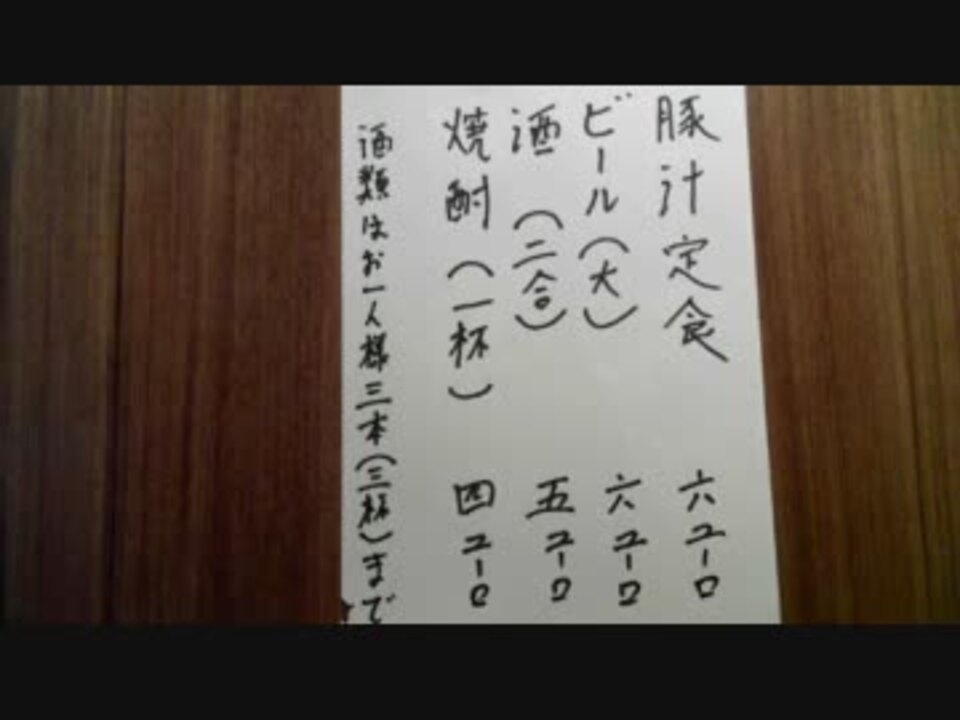 豚汁定食 六ユーロ
ビール(大) 六ユーロ
酒(二合) 五ユーロ
焼酎(一杯) 四ユーロ
酒類はお一人様三本(三杯)まで